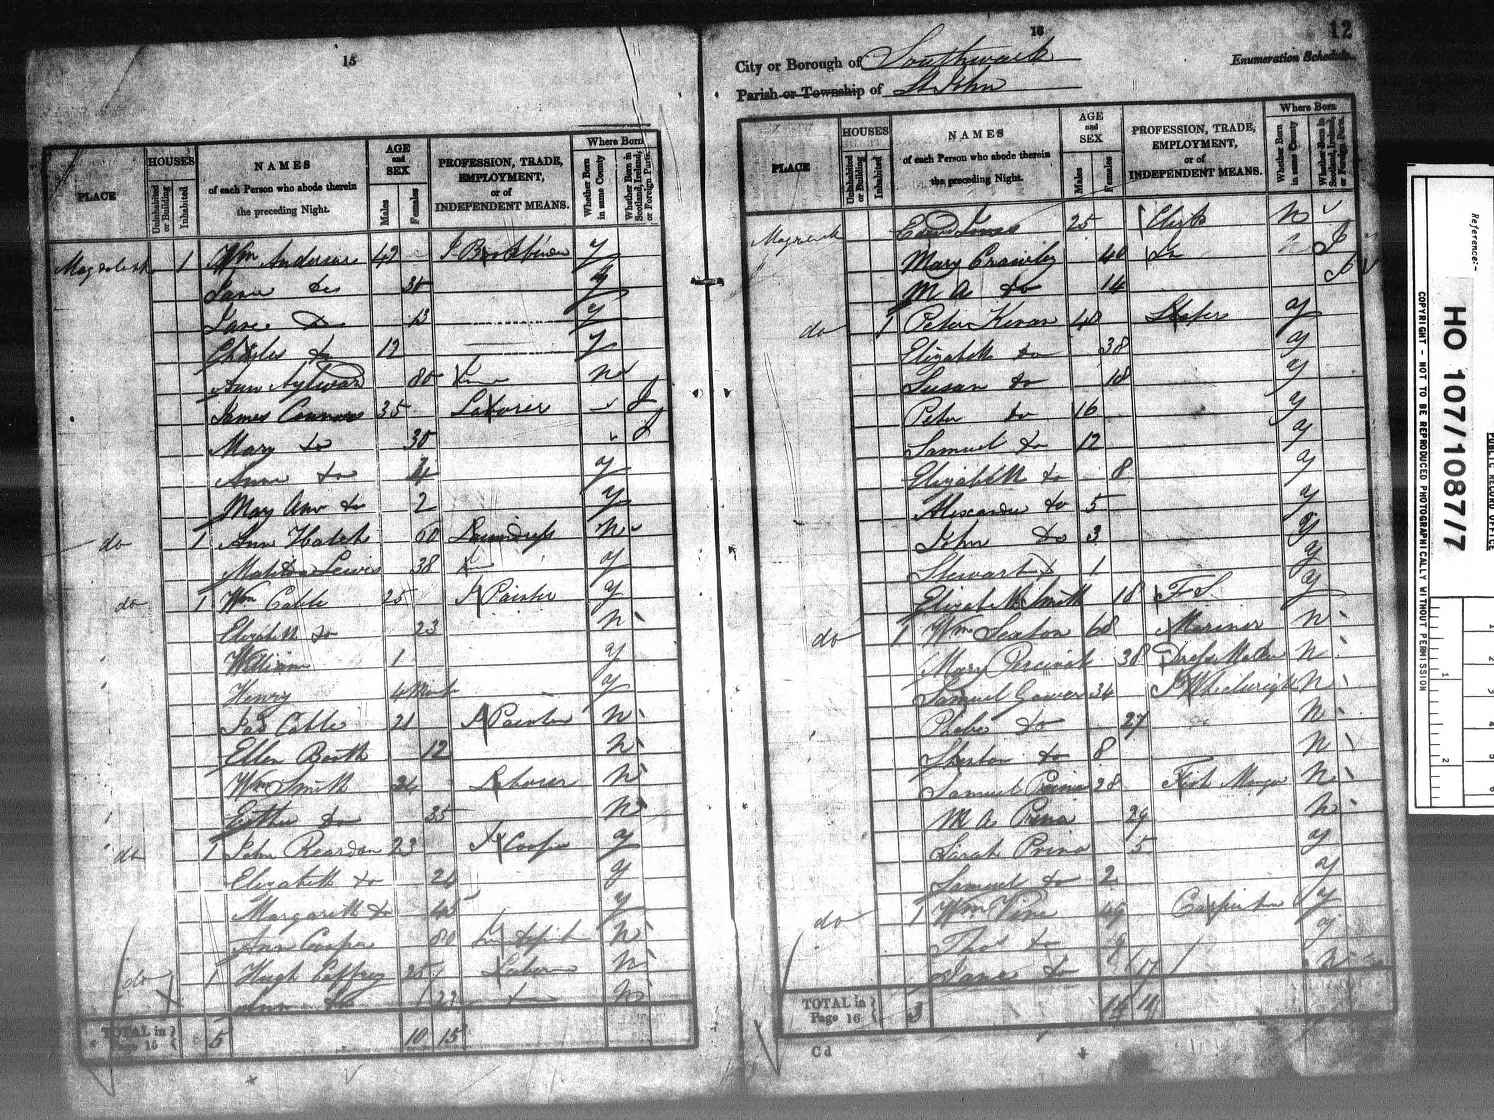 15
PLACE
HOUSES
Uninhabited or Building
Inhabited
NAMES
of each Person who abode therein
the preceding Night.
AGE and SEX
Males
Females
PROFESSION, TRADE, EMPLOYMENT,
or of
INDEPENDENT MEANS.
Where Born
Whether Born in same County
Whether Born in Scotland, Ireland, or Foreign Parts.
1 Wm Anderson 42 y
Jane do 35 y
Jane do 13 y
Charles do 12 y
Ann 80 n
James Connors 35 Laborer I
Mary do 30 I
Ann do 4 y
Mary Ann do 2 y
do 1 Ann Hatch 60 Laundress n
Lewis 38 y
do 1 Wm Cable 25 J Painter y
Elizabeth do 23 n
William 1 y
Henry 4 Month y
Jas Cable 21 J Painter n
Ellen Booth 12 n
Wm Smith 34 Laborer n
Esther do 35 n
do 1 John Reardon 23 J Cooper y
Elizabeth do 24 y
Margarett do 45 y
Ann Cooper 80 n
do 1 Hugh Caffrey 25 n
Ann do 23 n
TOTAL in Page 15 5 10 15
16
12
City or Borough of Southwark
Enumeration Schedule.
Parish or Township of St John
PLACE
HOUSES
Uninhabited or Building
Inhabited
NAMES
of each Person who abode therein
the preceding Night.
AGE and SEX
Males
Females
PROFESSION, TRADE, EMPLOYMENT,
or of
INDEPENDENT MEANS.
Where Born
Whether Born in same County
Whether Born in Scotland, Ireland, or Foreign Parts.
25 Clerk n
Mary Crawley 40 I
M A do 14
do 1 Peter Kevan 40 y
Elizabeth do 38 y
Susan do 18 y
Peter do 16 y
Samuel do 12 y
Elizabeth do 8 y
Alexander do 5 y
John do 3 y
Stewart do 1 y
Elizabeth Smith 18 F S y
do 1 Wm Sexton 68 Mariner n
Mary Percival 38 Dress Maker n
Samuel Gower 34 J Wheelwright n
Phebe do 27 n
do 8 n
Samuel Prina 28 Fish Monger n
M A Prina 29 n
Sarah Prina 5 y
Samuel do 2 y
do 1 Wm Vine 49 Carpenter y
Thos do 9 y
Jane do 17 n
TOTAL in Page 16 3 14 11
Cd
Reference:-
HO 107/1087/7
COPYRIGHT - NOT TO BE REPRODUCED PHOTOGRAPHICALLY WITHOUT PERMISSION
PUBLIC RECORD OFFICE
1
2